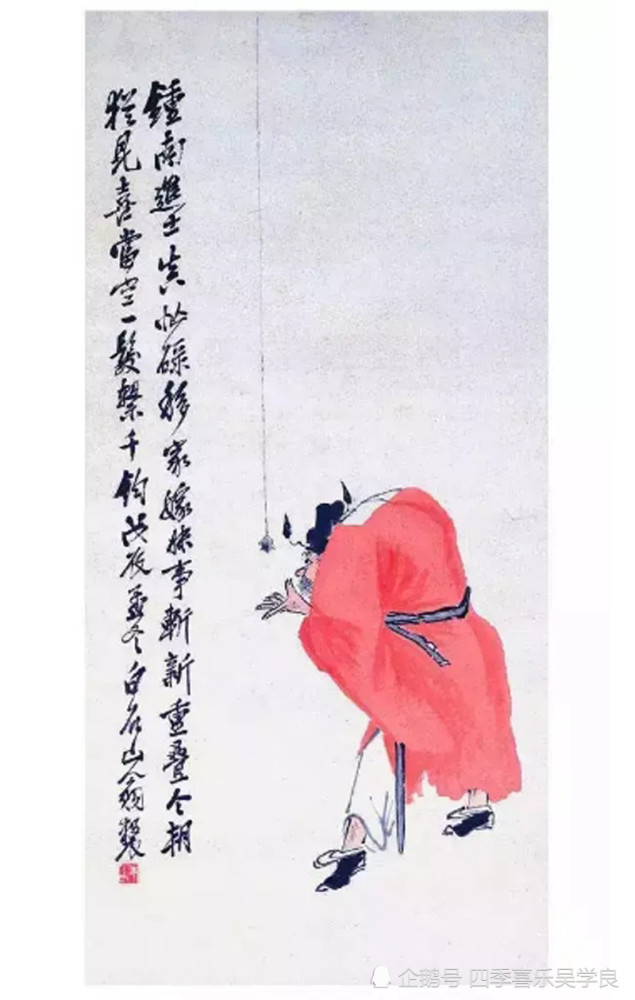 鍾南進士真忙碌移家嫁妹事斬新重疊今朝
猶見喜當空一髮繫千鈞戊辰孟冬白石山翁製
企鹅号 四季喜乐吴学良